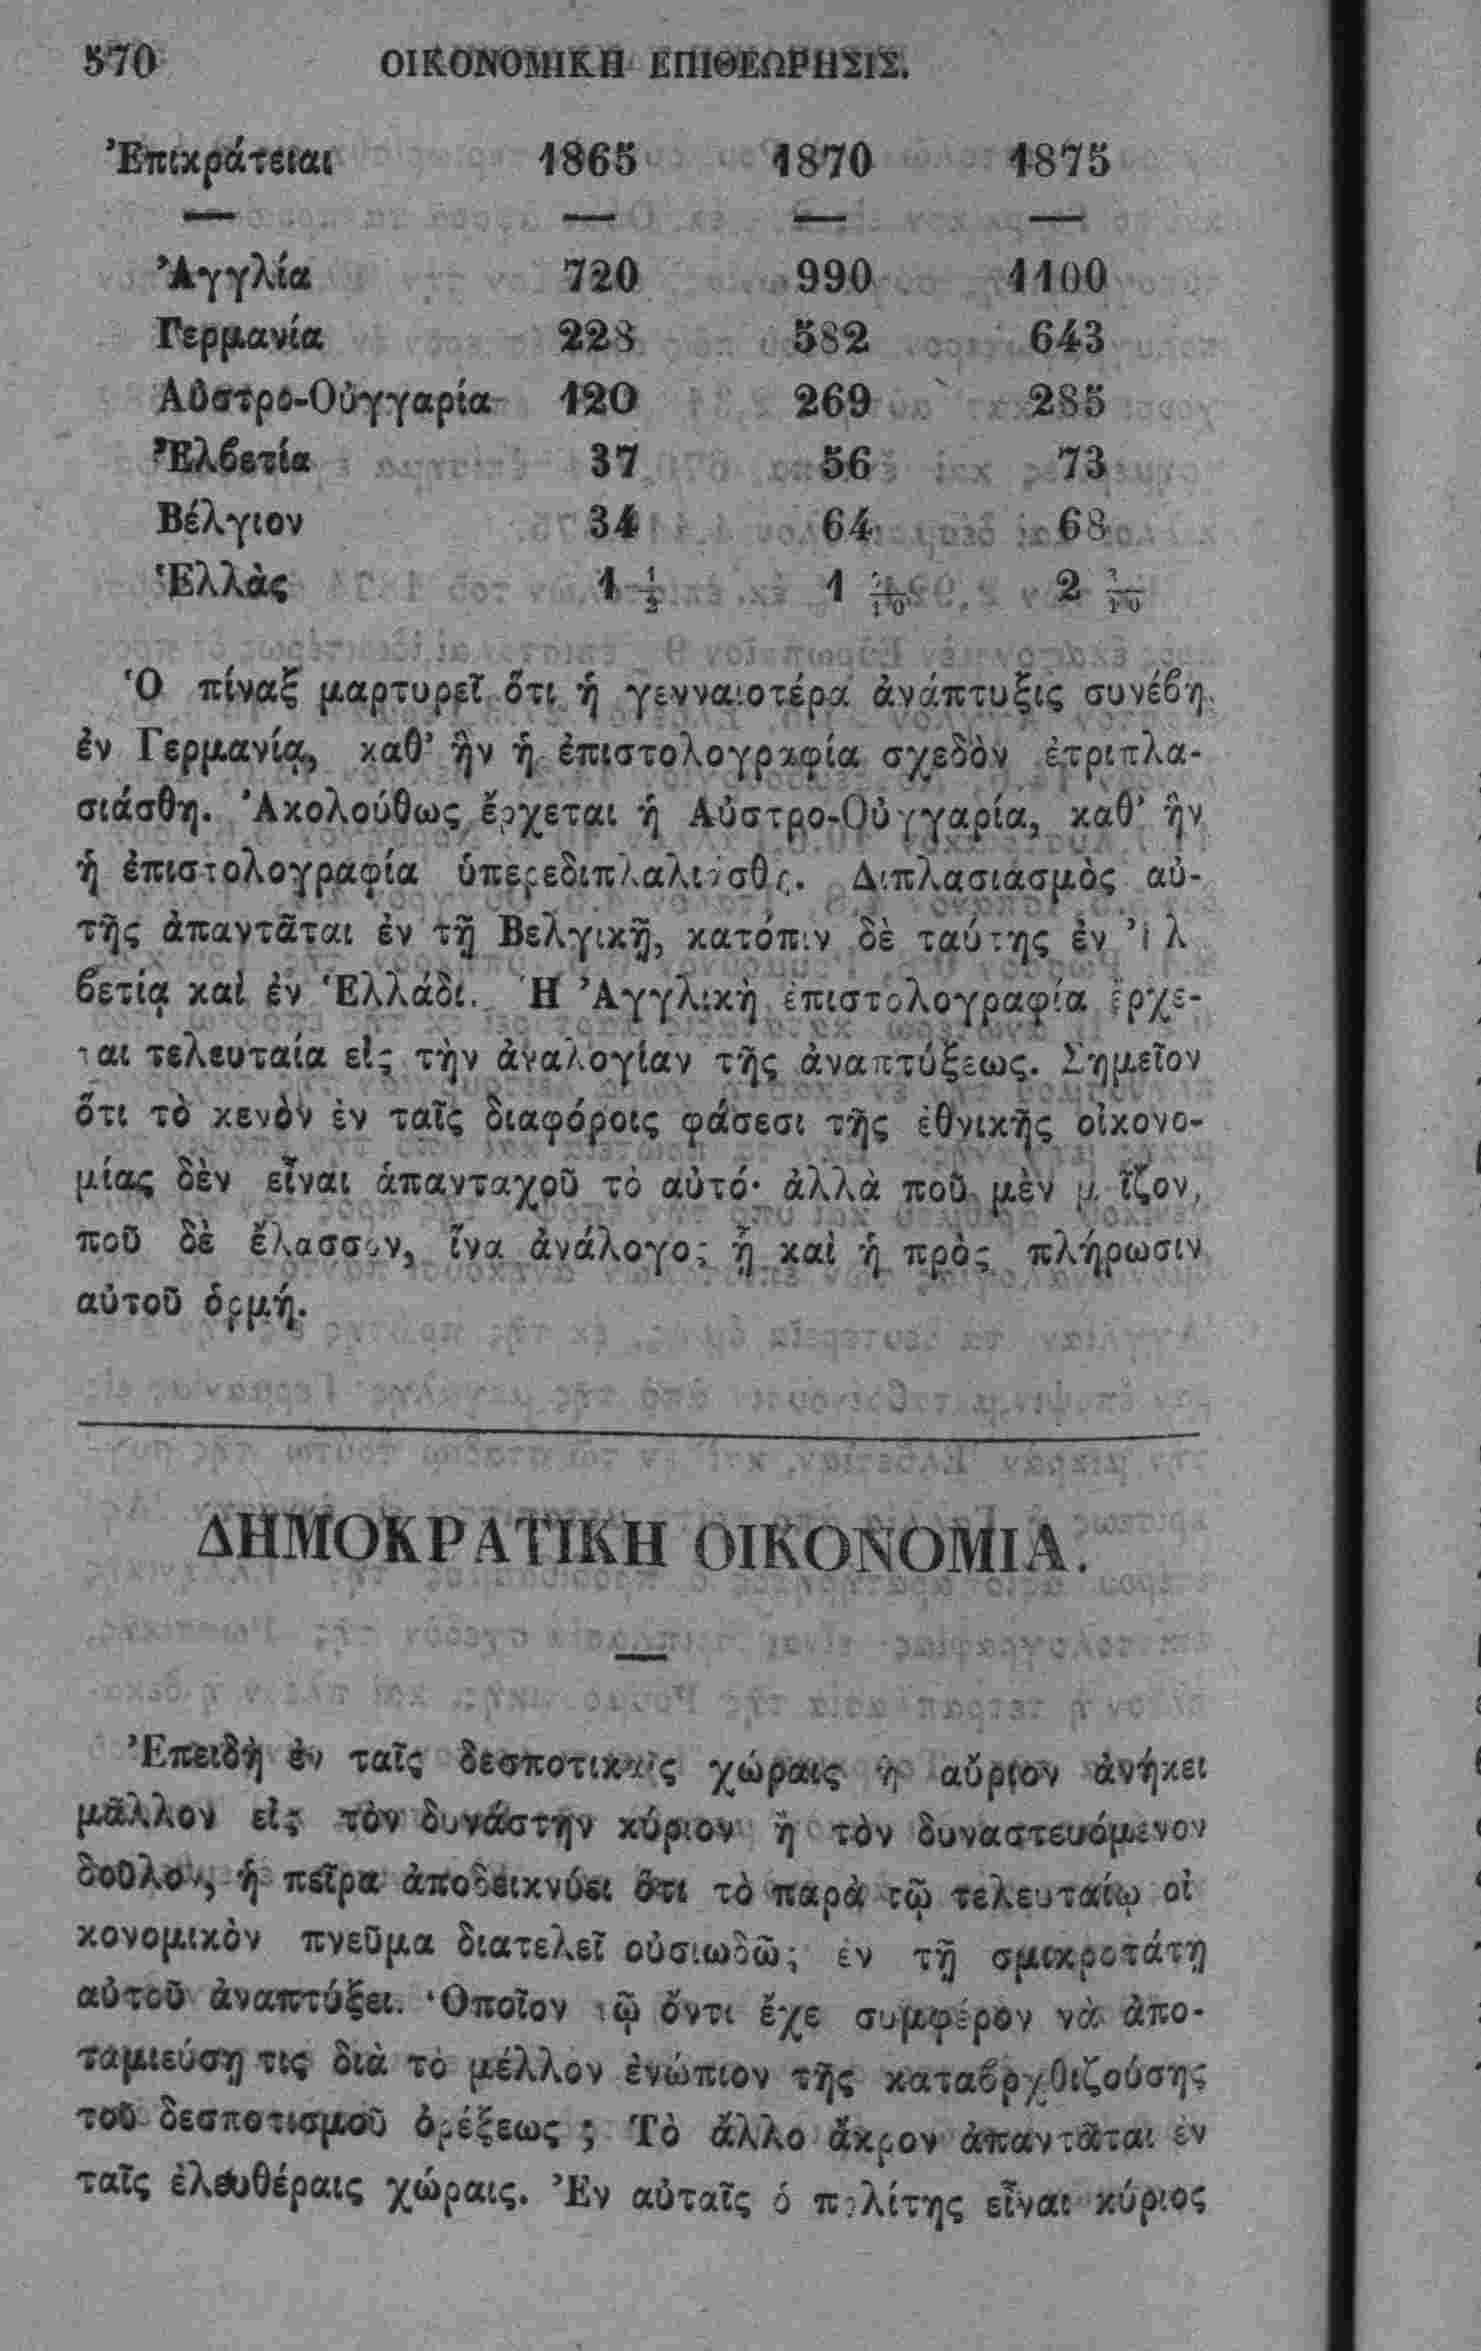 570 ΟΙΚΟΝΟΜΙΚΗ ΕΠΙΘΕΩΡΗΣΙΣ.
Ἐπικράτειαι 1865 1870 1875
Ἀγγλία 720 990 1100
Γερμανία 228 582 643
Αὐστρο-Οὑγγαρία 120 269 285
Ἐλβετία 37 56 73
Βέλγιον 34 64 68
Ἑλλὰς 1 1/2 1 2
Ὁ πίναξ μαρτυρεῖ ὅτι ἡ γενναιοτέρα ἀνάπτυξις συνέβη
ἐν Γερμανίᾳ, καθ' ἣν ἡ ἐπιστολογραφία σχεδὸν ἐτριπλα-
σιάσθη. Ἀκολούθως ἔρχεται ἡ Αὐστρο-Οὑγγαρία, καθ' ἣν
ἡ ἐπιστολογραφία Διπλασιασμὸς αὐ-
τῆς ἀπαντᾶται ἐν τῇ Βελγικῇ, κατόπιν δὲ ταύτης ἐν
βετίᾳ καὶ ἐν Ἑλλάδι. Ἡ Ἀγγλικὴ ἐπιστολογραφία ἔρχε-
ται τελευταία εἰς τὴν ἀναλογίαν τῆς ἀναπτύξεως. Σημεῖον
ὅτι τὸ κενὸν ἐν ταῖς διαφόροις φάσεσι τῆς ἐθνικῆς οἰκονο-
μίας δὲν εἶναι ἁπανταχοῦ τὸ αὐτό· ἀλλὰ ποῦ μὲν
ποῦ δὲ ἔλασσον, ἵνα ἀνάλογος ᾖ καὶ ἡ πρὸς πλήρωσιν
αὐτοῦ ὁρμή.
ΔΗΜΟΚΡΑΤΙΚΗ ΟΙΚΟΝΟΜΙΑ.
Ἐπειδὴ ἐν ταῖς δεσποτικαῖς χώραις ἡ αὔριον ἀνήκει
μᾶλλον εἰς τὸν δυνάστην κύριον ἢ τὸν δυναστευόμενον
δοῦλον, ἡ πεῖρα ἀποδεικνύει ὅτι τὸ παρὰ τῷ τελευταίῳ οἰ
κονομικὸν πνεῦμα διατελεῖ οὐσιωδῶς ἐν τῇ σμικροτάτῃ
αὐτοῦ ἀναπτύξει. Ὁποῖον τῷ ὄντι ἔχε συμφέρον νὰ ἀπο-
ταμιεύσῃ τις διὰ τὸ μέλλον ἐνώπιον τῆς καταβρχθιζούσης
τοῦ δεσποτισμοῦ ὀρέξεως ; Τὸ ἄλλο ἄκρον ἀπαντᾶται ἐν
ταῖς ἐλευθέραις χώραις. Ἐν αὐταῖς ὁ πολίτης εἶναι κύριος